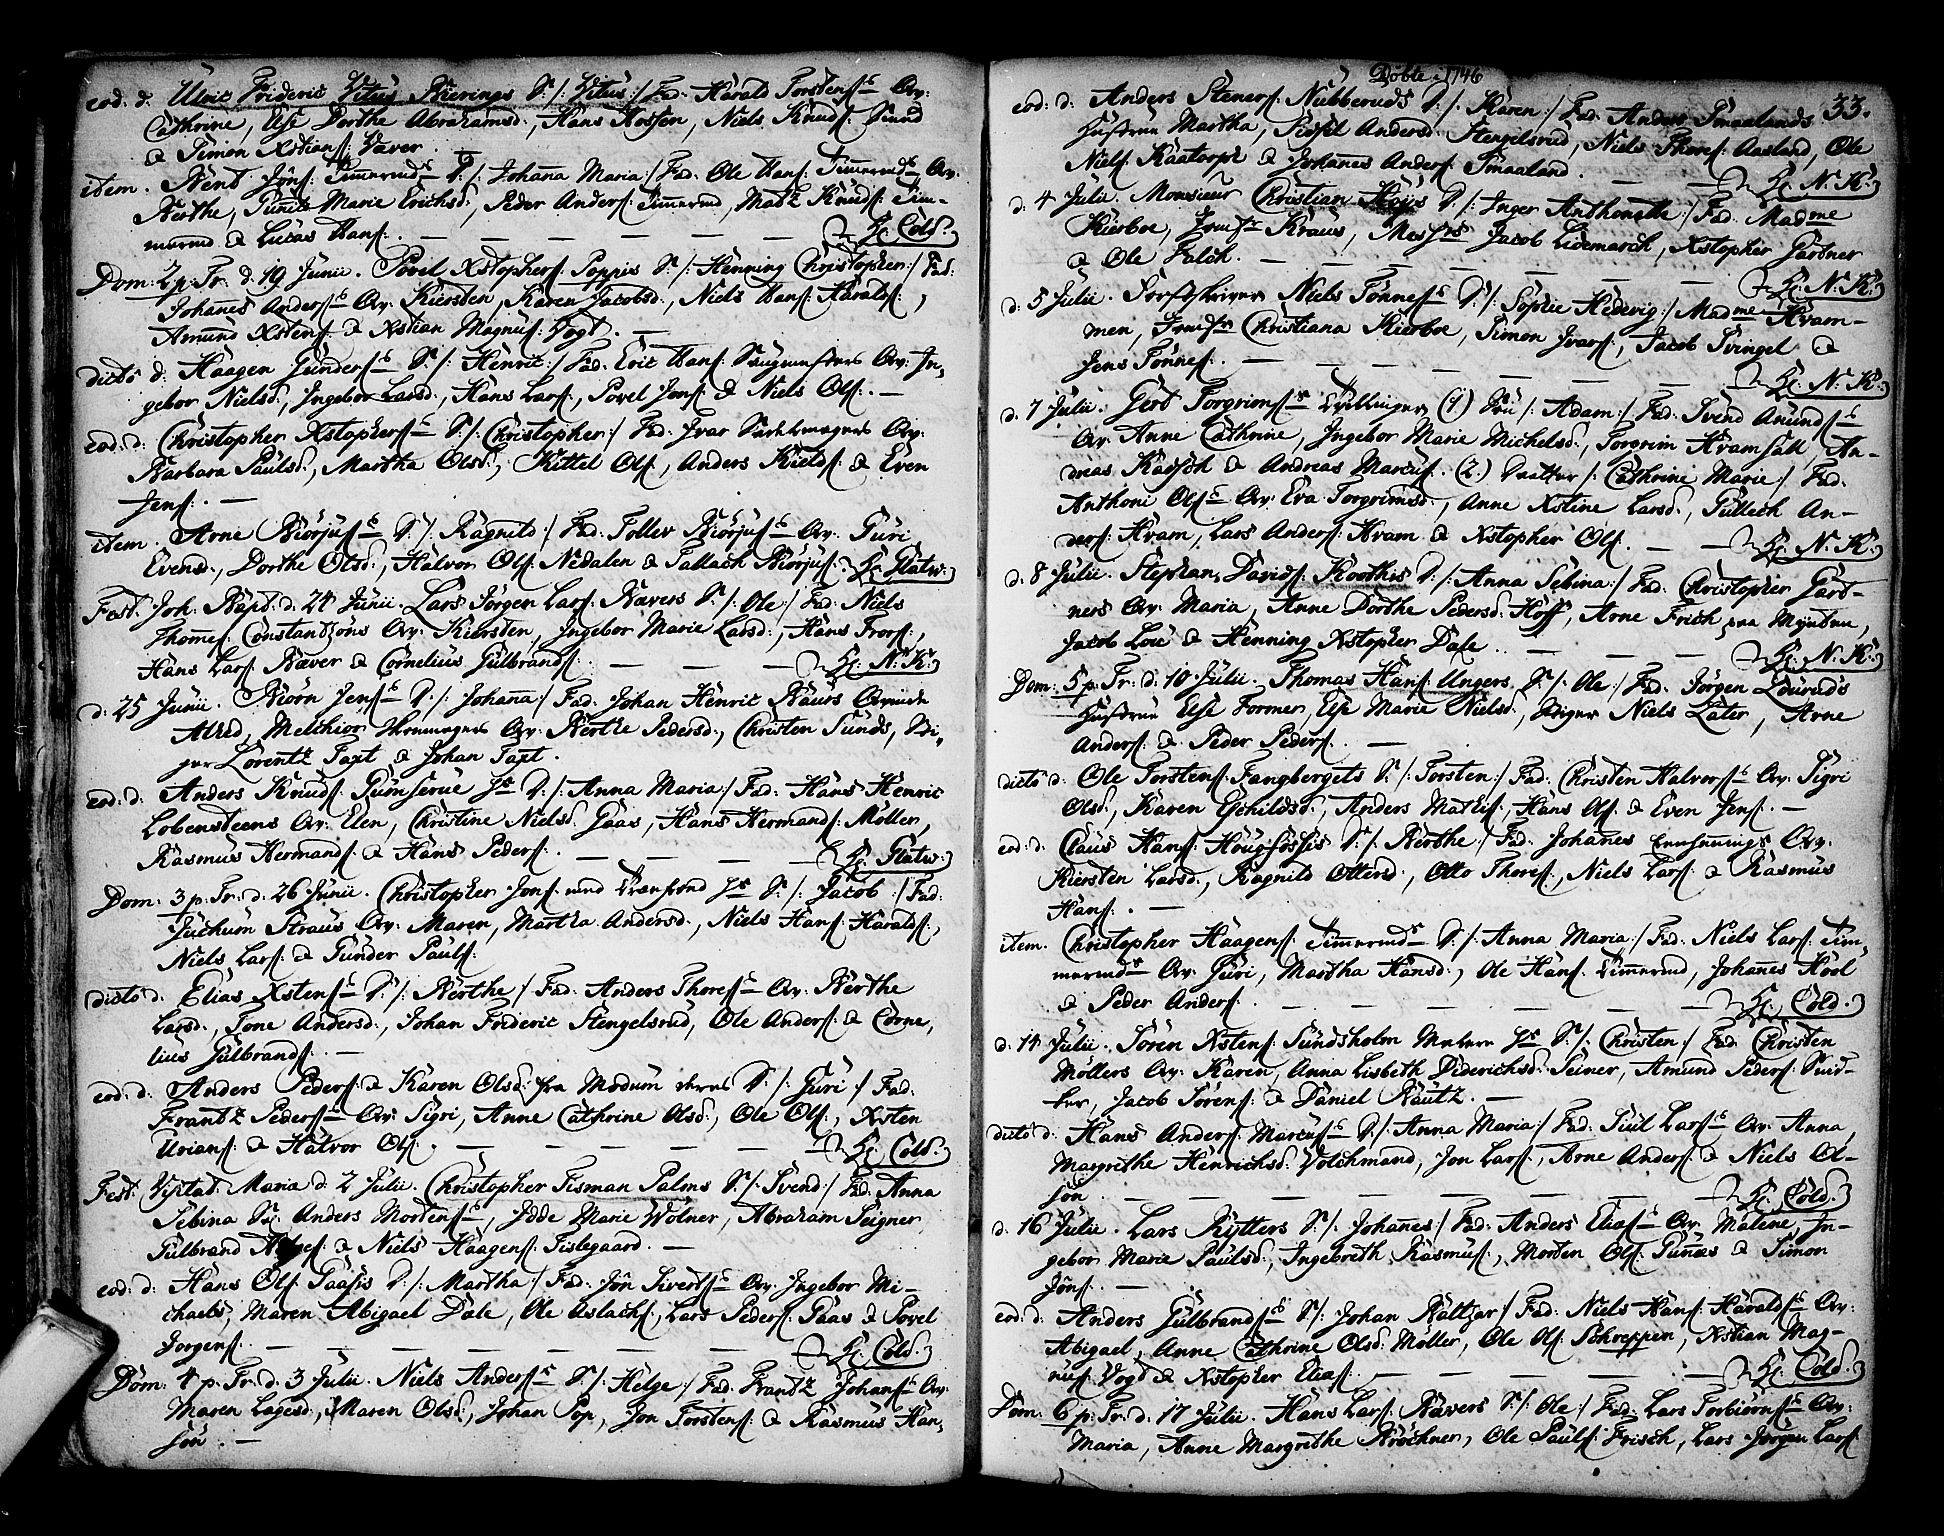 eod: d: Ulric Frideric Vitus Bierings S. /: Vitus :/ Fad: Harald Torstens: Qv:
Cathrine, Else Dorthe Abrahamsd:, Hans Kossen, Niels Knuds: Sund
& Simon Xstians: Væver.
item. Bent Jøns: Timermds D. /: Johana Maria :/ Fad: Ole Hans: Timermds Qv:
Berthe, Marie Erichsd:, Peder Anders: Timermd, Matz Knuds: Tim-
mermd & Lucas Hans: Hr: Cold.
Dom: 2 p: Tr: d: 19 Junii. Povel Xstophers: Poppis S. /: Henning Christopher :/ Fad:
Johanes Anders: Qv: Kiersten, Karen Jacobsd:, Niels Hans: Haralds:,
Amund Xstens: & Xstian Magnus: Vogt.
dicto d: Haagen Gunders: S. /: Henric :/ Fad: Eric Hans: Qv: In-
gebor Nielsd:, Ingebor Larsd:, Hans Lars:, Povel Jens: & Niels Ols:
eod: d: Christopher Xstophers: S. /: Christopher :/ Fad: Ivar Sadelmagers Qv:
Barbara Paulsd:, Martha Olsd:, Kittel Ols:, Anders Kields: & Even
Jens:
item. Arne Biørjus: D. /: Ragnild :/ Fad: Tollev Biørjus: Qv: Guri
Evensd:, Dorthe Olsd:, Halvor Ols: Nedalen & Tallach Biørjus: Hr: Glatw:
Fest: Joh: Bapt: d: 24 Junii. Lars Jørgen Lars: Bævers S. /: Ole :/ Fad: Niels
Thomes: Constantzøns Qv: Kiersten, Ingebor Marie Larsd:, Hans Frors:,
Hans Lars: Bæver & Cornelius Gulbrands: Hr: N: K:
d: 25 Junii. Biørn Jens: D. /: Johana :/ Fad: Johan Henric Baurs
Atled, Melchior Qv: Berthe Pedersd:, Christen Sunds, Bi-
ger Lorentz Taxt & Johan Taxt.
eod: d: Anders Knuds: D. /: Anna Maria :/ Fad: Hans Henric
Lobensteens Qv: Elen, Christine Nielsd: Gaas, Hans Hermands: Møller,
Rasmus Hermands: & Hans Peders: Hr: Glatw:
Dom: 3 p: Tr: d: 26 Junii. Christopher Jons: S. /: Jacob :/ Fad:
Juchum Straus Qv: Maren, Martha Andersd:, Niels Hans: Haralds:,
Niels Lars: & Gunder Pauls:
dicto d: Elias Xstens: D. /: Berthe :/ Fad: Anders Thores: Qv: Berthe
Larsd:, Tone Andersd:, Johan Frideric Stengelsrud, Ole Anders: & Corne,
lius Gulbrands:
eod: d: Anders Peders: & Karen Olsd: fra Modum deres D. /: Guri :/ Fad:
Frantz Peders: Qv: Sigri, Anne Cathrine Olsd:, Ole Ols:, Xsten
Urians: & Halvor Ols: Hr: Cold.
Fest: Visitat: Maria d: 2 Julii. Christopher Tisman Palms S. /: Svend :/ Fad: Anna
Sebina Anders Mortens:, Idde Marie Wolner, Abraham Seigner
Gulbrand & Niels Haagens: Tislegaard.
eod: d: Hans Ols: Gaasis D. /: Martha :/ Fad: Jøn Siverts: Qv: Ingebor Mi-
chaels:, Maren Abigael Dale, Ole Aslachs:, Lars Peders: Gaas & Povel
Jørgens: Hr: Cold.
Dom: 4 p: Tr: d: 3 Julii. Niels Anders: S. /: Helge :/ Fad: Frantz Johans: Qv:
Maren Lagesd:, Maren Olsd:, Johan Pop, Jon Torstens: & Rasmus Han,
søn.
Døbte i 1746
33.
eod: d: Anders Steners: Nubberuds D. /: Karen :/ Fad: Anders Smaalands
Hustrue Martha, Sissel Andersd: Stengelsrud, Niels Thores: Aasland, Ole
Niels: Kaatorpe & Johannes Anders: Smaaland. Hr: N: K:
d: 4 Julii. Monsieur Christian Høyis D. /: Inger Anthonethe :/ Fad: Madme
Kierboe, Jomfr Kraus, Messrs Jacob Lidemarch, Xstopher Gartner
& Ole Falch. Hr: N: K:
d: 5 Julii. Forstskriver Niels Tønnes: D. /: Sophie Hedevig :/ Madme Hvam-
men, Jomfr Christiana Kierboe, Simon Ivars:, Jacob Svingel &
Jens Tønnes: Hr: N: K:
d: 7 Julii. Gert Torgrims: Tvillinger (1) Søn /: Adam :/ Fad: Svend Amunds:
Qv: Anne Cathrine, Ingebor Marie Michelsd:, Torgrim Hvamsall, An-
dreas Kadsch & Andreas Marcus: (2.) Daatter /: Cathrine Marie :/ Fad:
Anthoni Ols: Qv: Eva Torgrimsd:, Anne Xstine Larsd:, Gullech An-
ders: Hvam, Lars Anders: Hvam & Xstopher Ols: Hr: N: K:
d: 8 Julii. Stephan Davids: Koothis D. /: Anna Sebina :/ Fad: Christopher Gart-
ners Qv: Maria, Anne Dorthe Pedersd: Hoff, Arne Frich paa Mynten,
Jacob Loue & Henning Xstopher Dase. Hr: N: K:
Dom: 5 p: Tr: d: 10 Julii. Thomas Hans: Ungers S. /: Ole :/ Fad: Jørgen Edvards
Hustrue Else Former, Else Marie Nielsd:, Stiger Niels Later, Arne
Anders: & Peder Peders:
dicto d: Ole Torstens: Fangbergets S. /: Torsten :/ Fad: Christen Halvors: Qv: Sigri
Olsd:, Karen Eschildsd:, Anders Mathis:, Hans Ols: & Even Jens:
eod: d: Claus Hans: Hougfossis D. /: Berthe :/ Fad: Johanes Qv:
Kiersten Larsd:, Ragnild Ottersd:, Otto Thores:, Niels Lars: & Rasmus
Hans:
item. Christopher Haagens: Timermds D. /: Anna Maria :/ Fad: Niels Lars: Tim,
mermds Qv: Guri, Martha Hansd:, Ole Hans: Timermd, Johannes Høsl
& Peder Anders: Hr: Cold.
d: 14 Julii. Søren Xstens: Sundsholm S. /: Christen :/ Fad: Christen
Møllers Qv: Karen, Anna Lisbeth Diderichsd: Seiner, Amund Peders: Snid-
ker, Jacob Sørens: & Daniel Kautz.
dicto d: Hans Anders: Marcus: D. /: Anna Maria :/ Fad: Siul Lars: Qv: Anna,
Margrethe Henrichsd: Volchmand, Jon Lars:, Arne Anders: & Niels Ol-
søn Hr: Cold.
d: 16 Julii. Lars Rytters S. /: Johanes :/ Fad: Anders Elias: Qv: Malene, In-
gebor Marie Paulsd:, Ingebreth Rasmus:, Morten Ols: Gunæs & Simon
Jøns:
eod: d: Anders Gulbrands: S. /: Johan Baltzar :/ Fad: Niels Hans: Haralds: Qv:
Abigael, Anne Cathrine Olsd: Møller, Ole Ols: Schreppen, Xstian Mag-
nus: Vogd & Xstopher Elias: Hr: Cold.
Dom: 6 p: Tr: d: 17 Julii. Hans Lars: Bævers S. /: Ole :/ Fad: Lars Torbiørns: Qv:
Maria, Anne Margrethe Brøchner, Ole Pauls: Frisch, Lars Jørgen Lars: